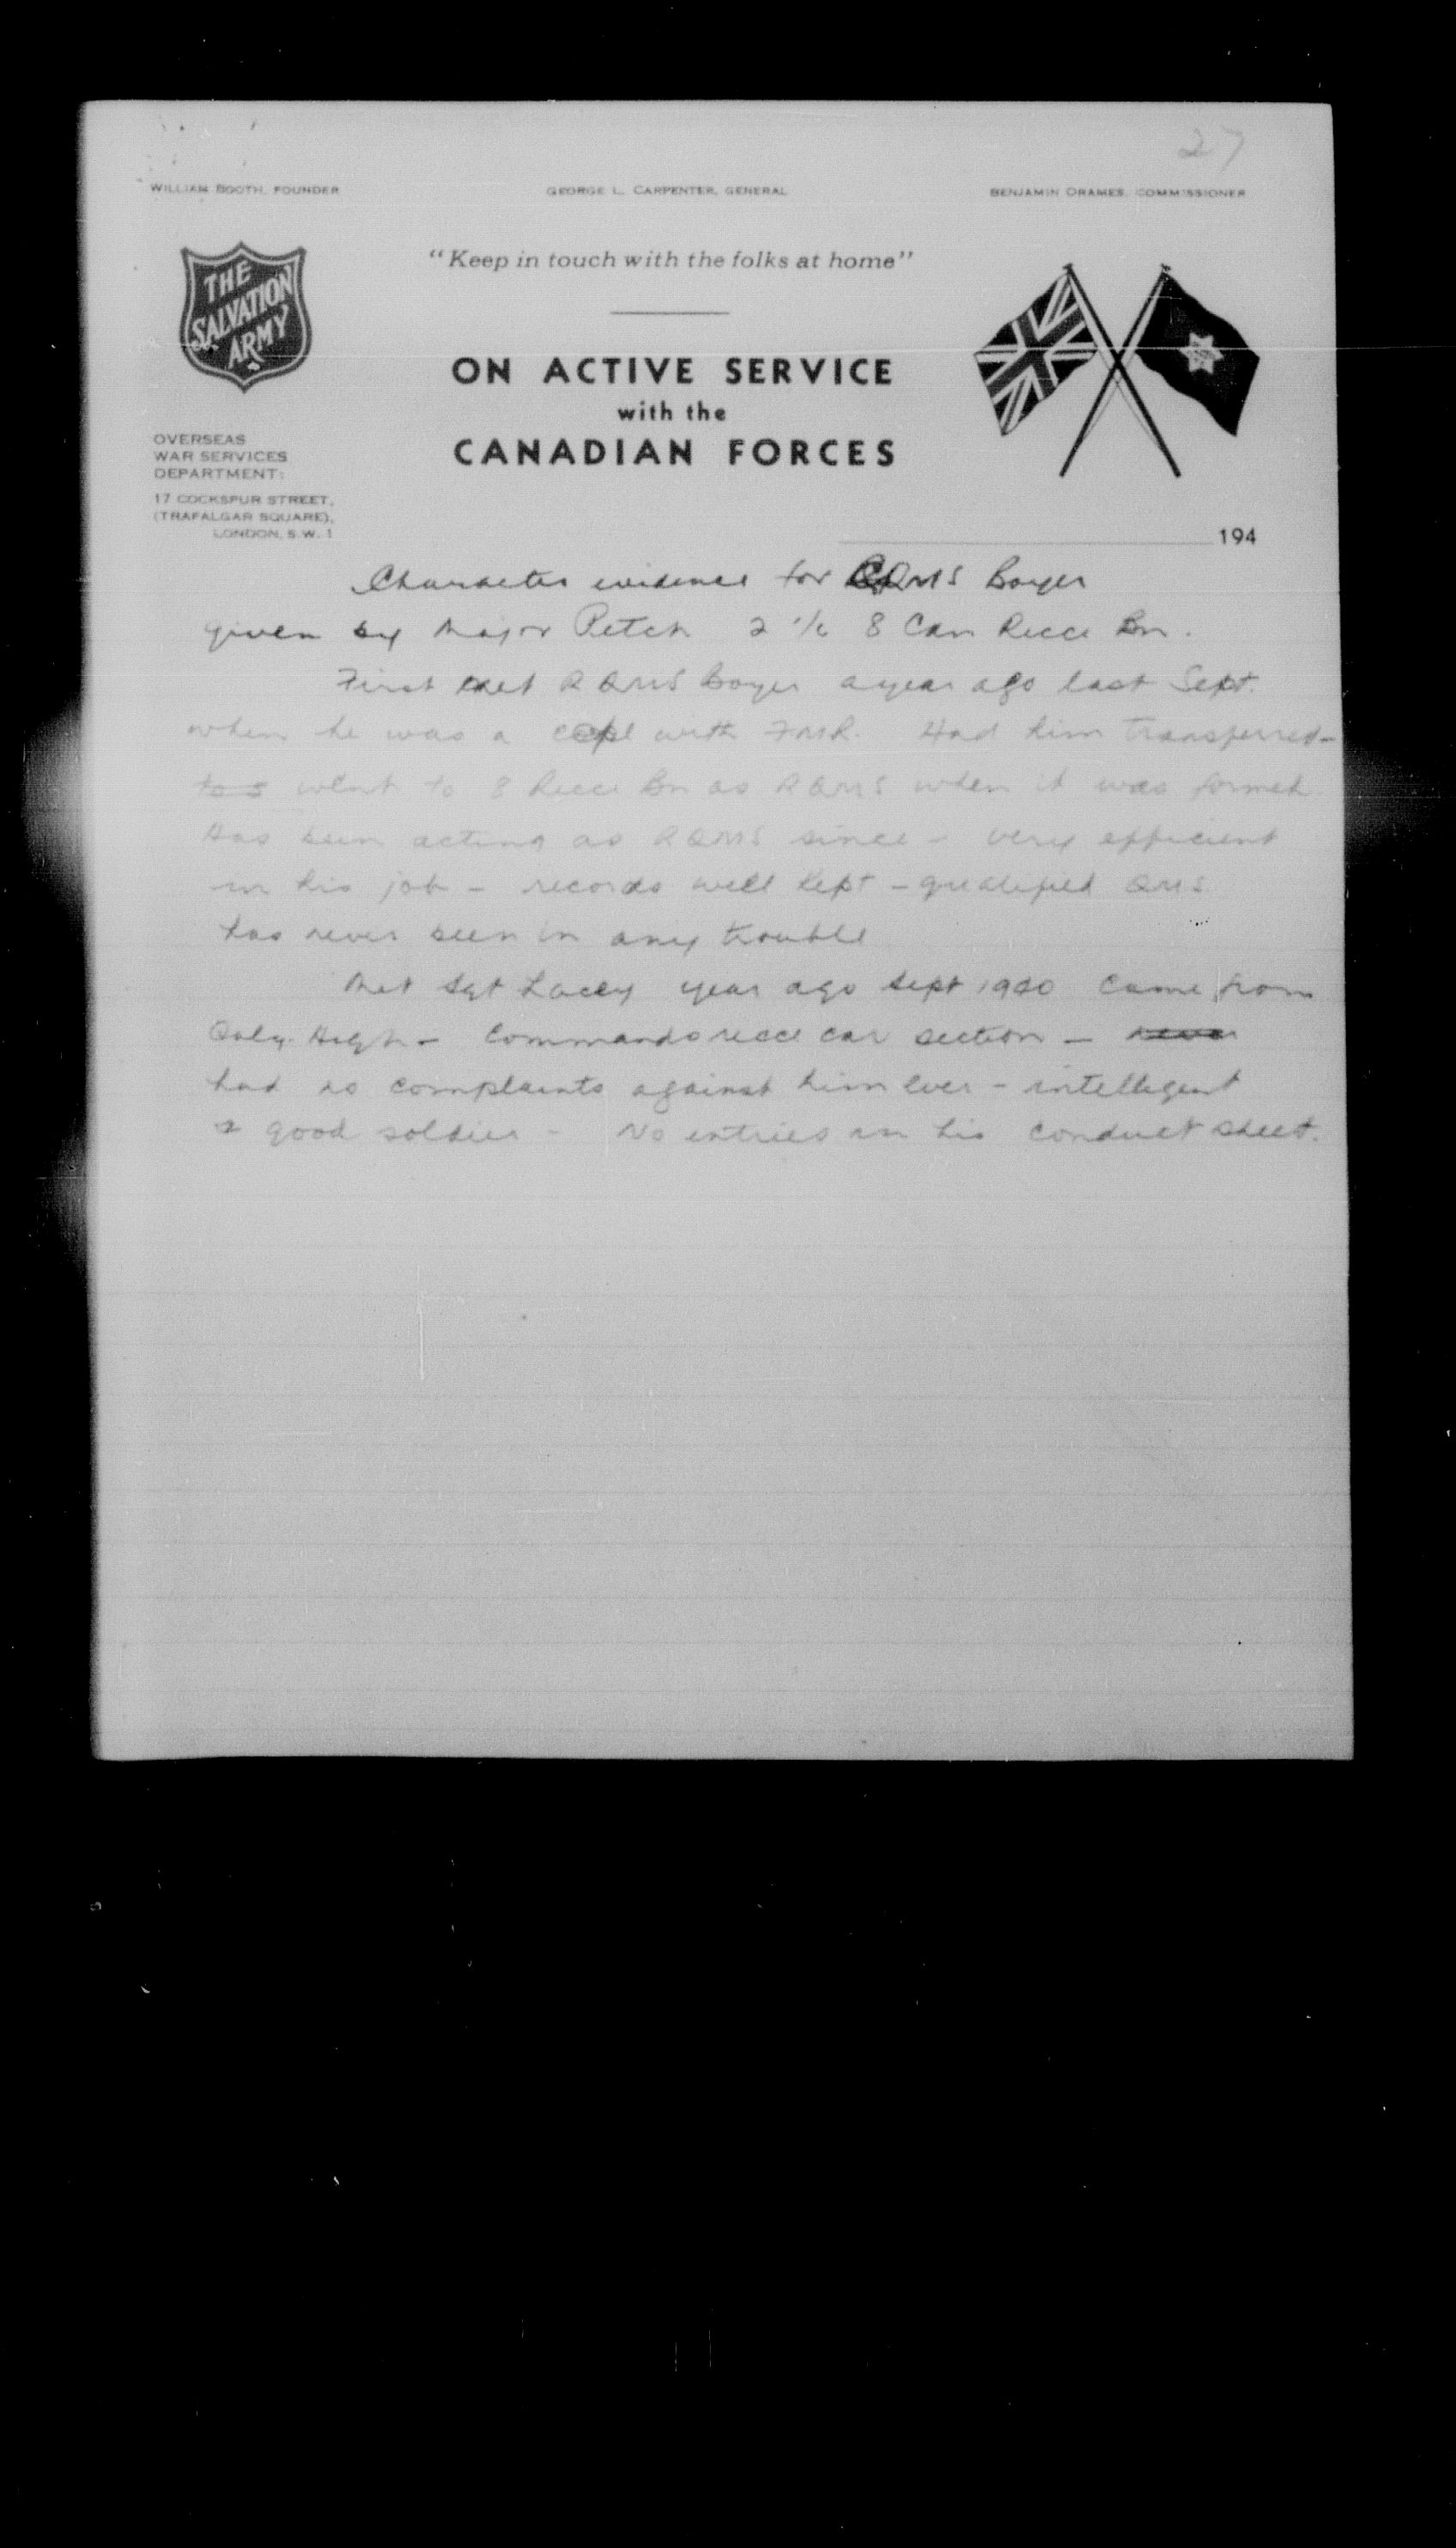 27
WILLIAM BOOTH, FOUNDER GEORGE L. CARPENTER, GENERAL BENJAMIN ORAMES, COMMISSIONER
THE
SALVATION
ARMY
"Keep in touch with the folks at home"
ON ACTIVE SERVICE
with the
CANADIAN FORCES
OVERSEAS
WAR SERVICES
DEPARTMENT:
17 COCKSPUR STREET,
(TRAFALGAR SQUARE),
LONDON, S.W. 1
194
Character evidence for RQMS Boyer
given by Major Petch 2 i/c 8 Can Recce Bn.
First met RQMS Boyer a year ago last Sept.
when he was a cpl with FMR. Had him transferred -
went to 8 Recce Bn as RQMS when it was formed.
Has been acting as RQMS since - very efficient
in his job - records well kept - qualified QMS
has never been in any trouble
Met Sgt Lacey year ago Sept 1940 came from
High - Commands recce car section - never
had no complaints against him ever - intelligent
& good soldier - No entries on his conduct sheet.